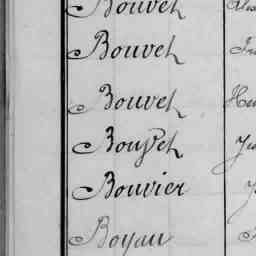 Bouvet
Bouvet
Bouvet
Bouvet
Bouvier
Boyau